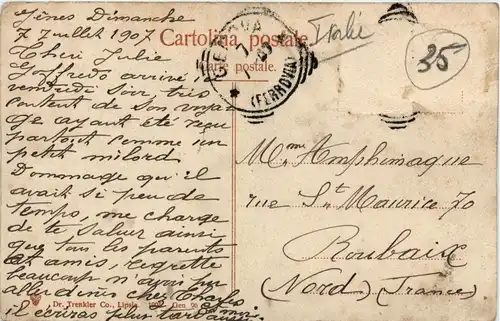 Gênes Dimanche
7 Juillet 1907
Cheri Julie
Goffredo arrivé
vendredi soir, très
content de son voyage
ayant été reçu
partout comme un
petit milord
Dommage qu'il
avait si peu de
temps, me charge
de te saluer ainsi
que tous les parents
et amis, regrette
beaucoup n'ayant pu
aller diner chez Charles
il écrira plus tard
Cartolina postale
Carte postale.
GENOVA
(FERROVIA)
Italie
25
Mme Amphimaque
rue St Maurice 70
Roubaix
(Nord) (France)
Dr. Trenkler Co., Lipsia. Gen